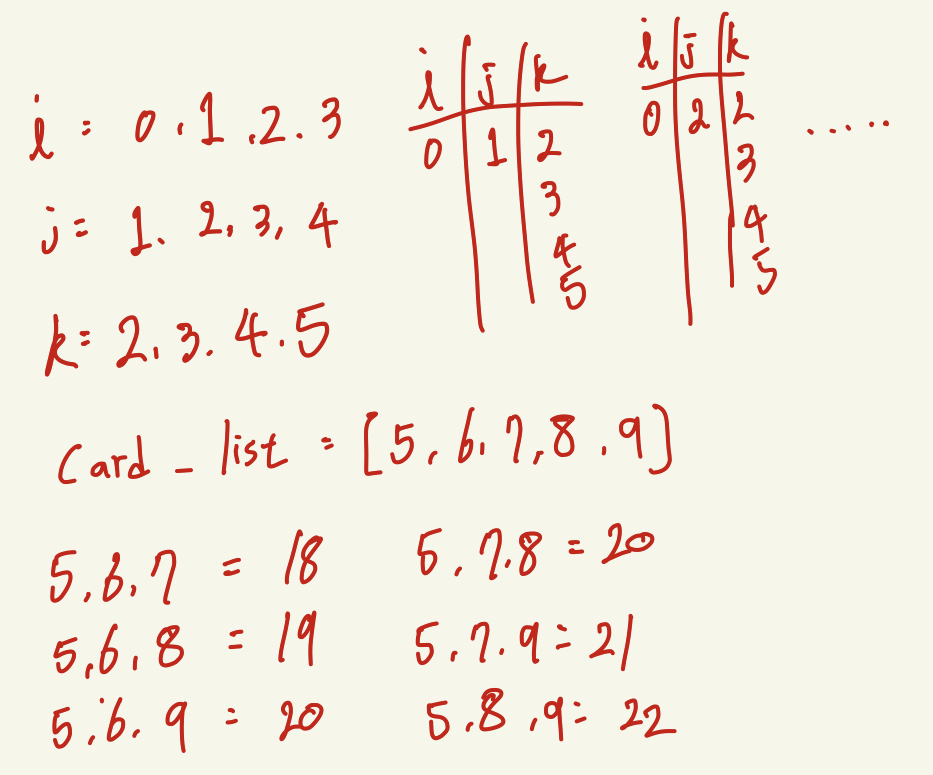 i = 0, 1, 2, 3
j = 1, 2, 3, 4
k = 2, 3, 4, 5
i j k
0 1 2
3
4
5
i j k
0 2 2
3
4
5
.....
Card_list = [5, 6, 7, 8, 9]
5, 6, 7 = 18
5, 6, 8 = 19
5, 6, 9 = 20
5, 7, 8 = 20
5, 7, 9 = 21
5, 8, 9 = 22